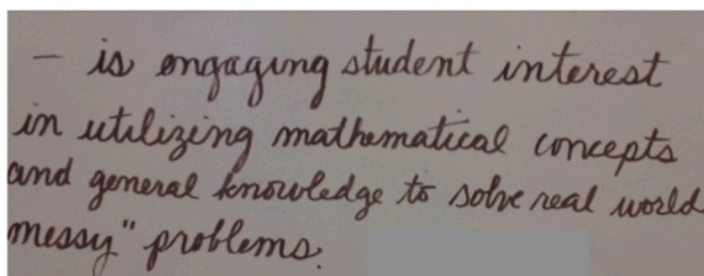 — is engaging student interest
in utilizing mathematical concepts
and general knowledge to solve real world
messy" problems.